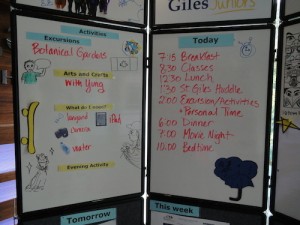 Giles Juniors
Activities
Excursions
Botanical Gardens
Arts and Crafts
with Ying
What do I need?
lanyard
iPad
camera
water
Evening Activity
Tomorrow
Today
7:15 Breakfast
8:30 Classes
12:30 Lunch
1:30 St Giles Huddle
2:00 Excursion/Activities
+ Personal Time
6:00 Dinner
7:00 Movie Night
10:00 Bedtime
This week